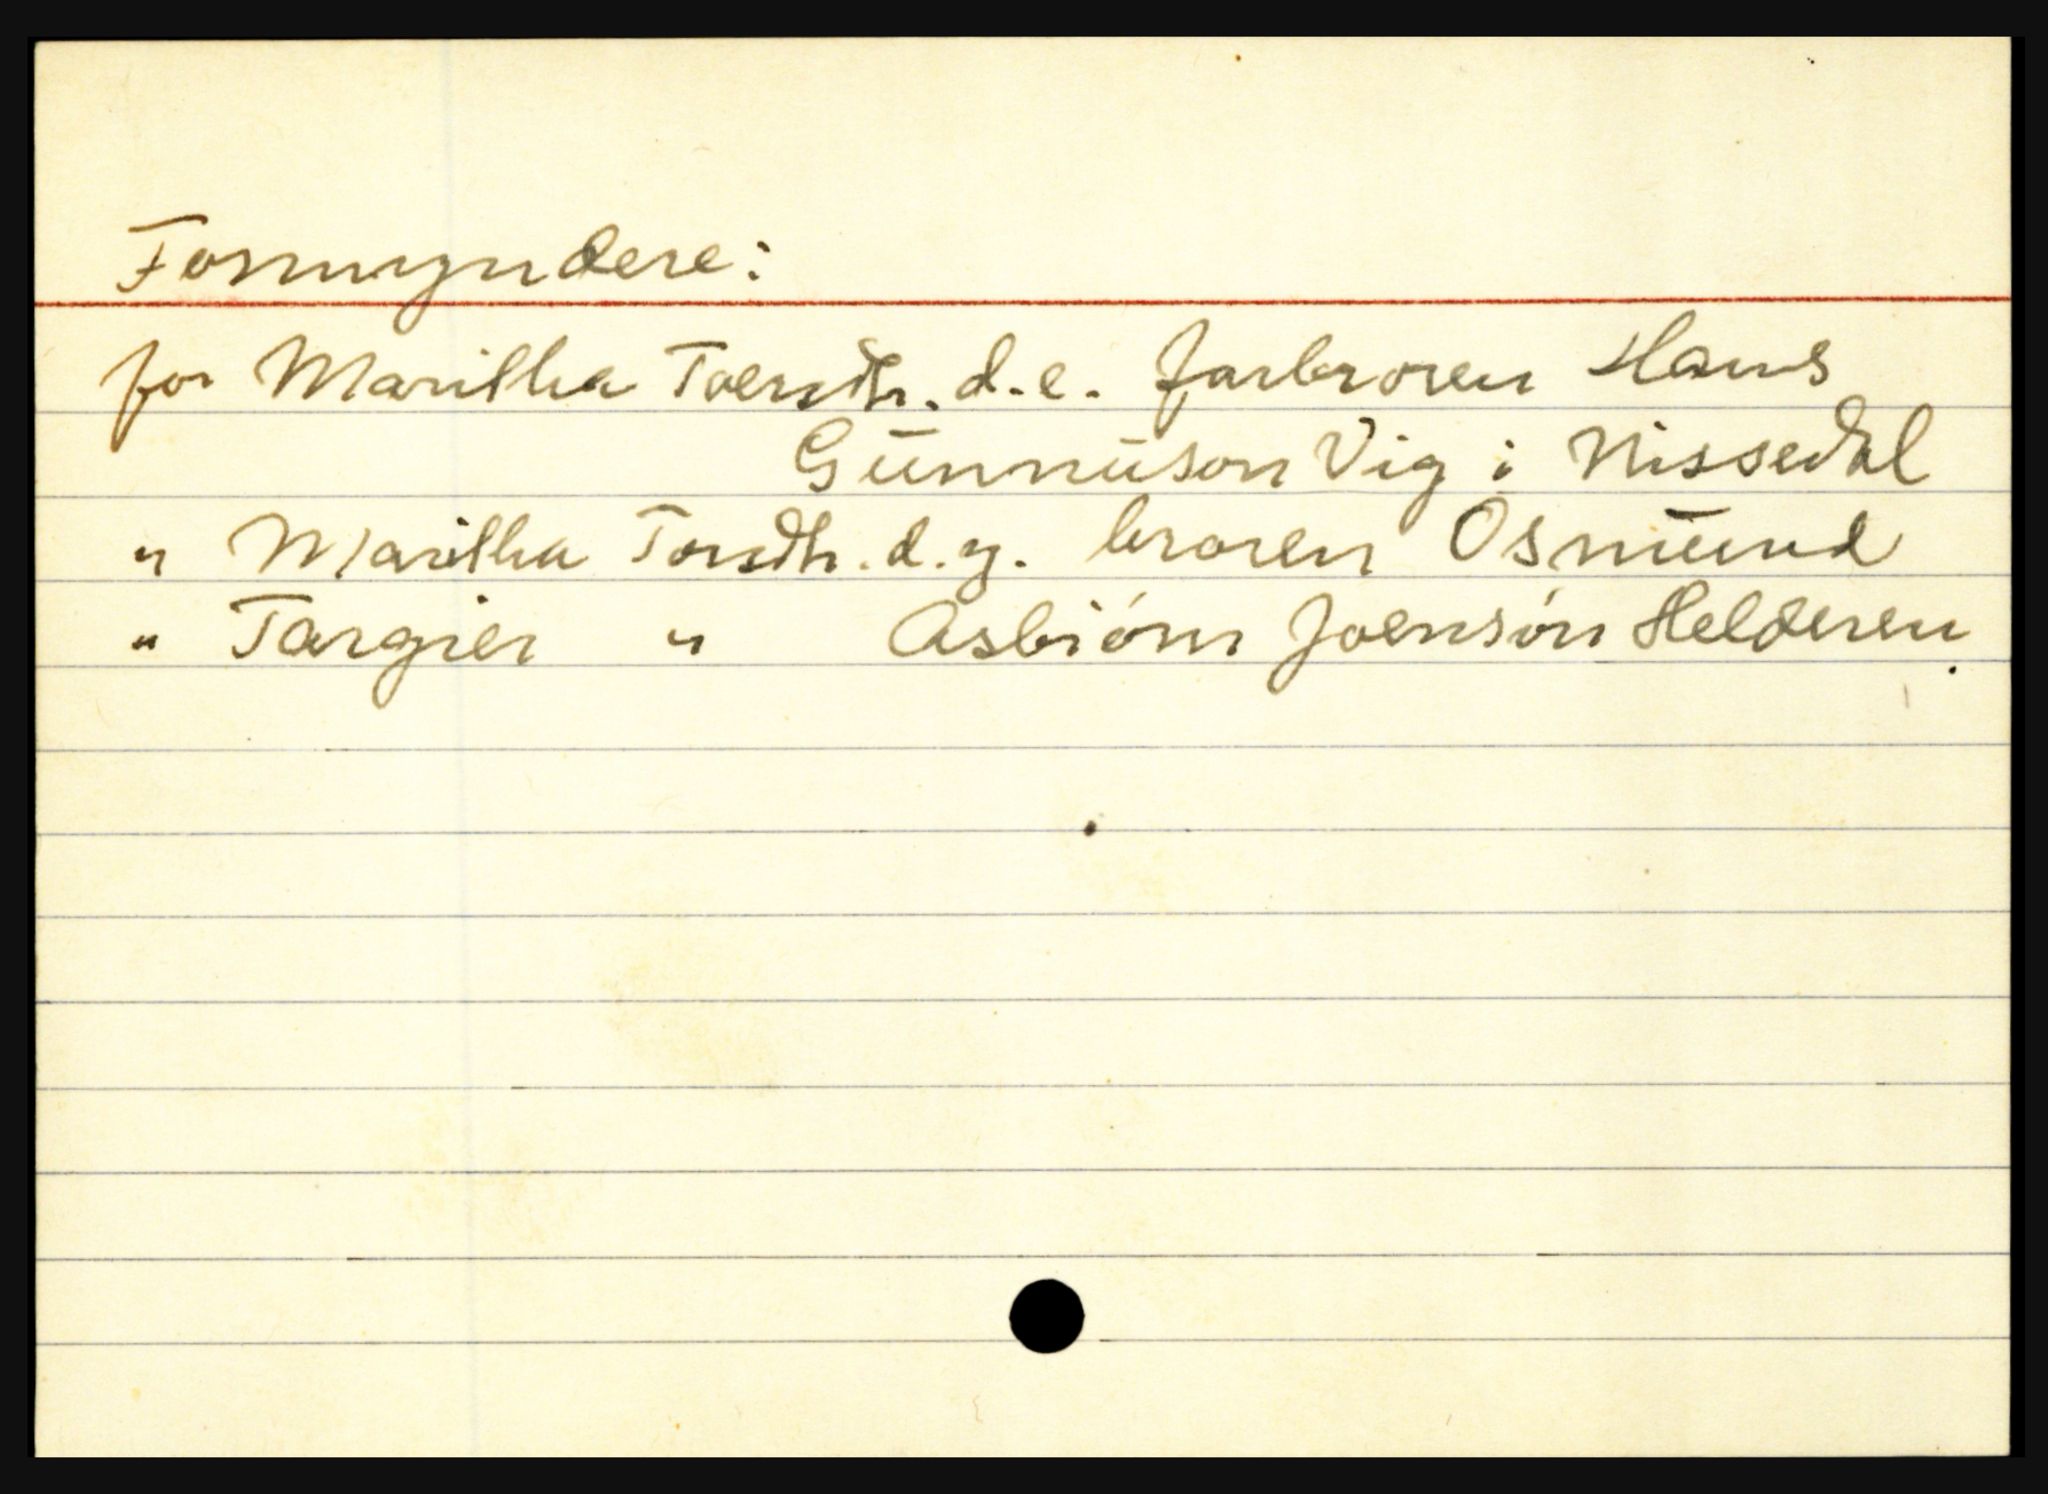 Formyndere:
for Maritha Toersdtr. d.e. farbroren Hans
Gunnuson Vig i Nissedal
" Maritha Torsdtr. d.y. broren Osmund
" Targier " Asbiörn Joensön Helderen